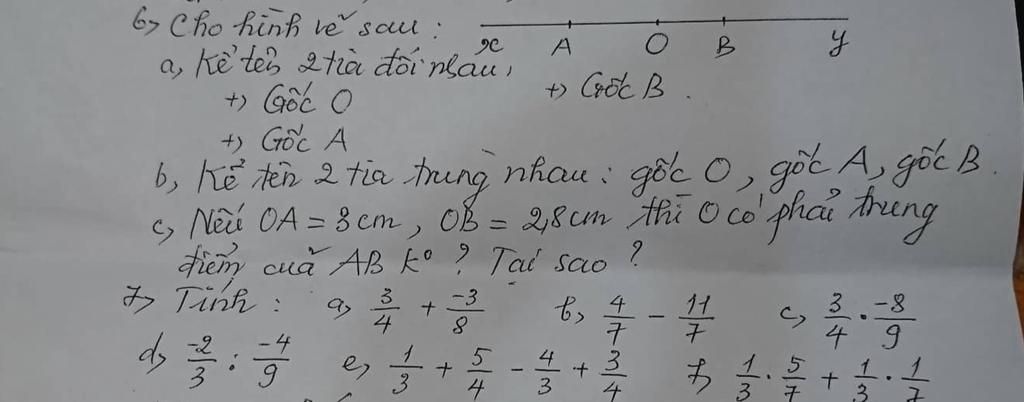 6) Cho hình vẽ sau :
x A O B y
a, Kể tên 2 tia đối nhau,
+) Gốc O +) Gốc B .
+) Gốc A
b, Kể tên 2 tia trùng nhau : gốc O, gốc A, gốc B.
c, Nếu OA = 3cm, OB = 2,8cm thì O có phải trung
điểm của AB k° ? Tại sao ?
7) Tính : a, 3/4 + -3/8 b, 4/7 - 11/7 c, 3/4 . -8/9
d, -2/3 : -4/9 e, 1/3 + 5/4 - 4/3 + 3/4 f, 1/3 . 5/7 + 1/3 . 1/7